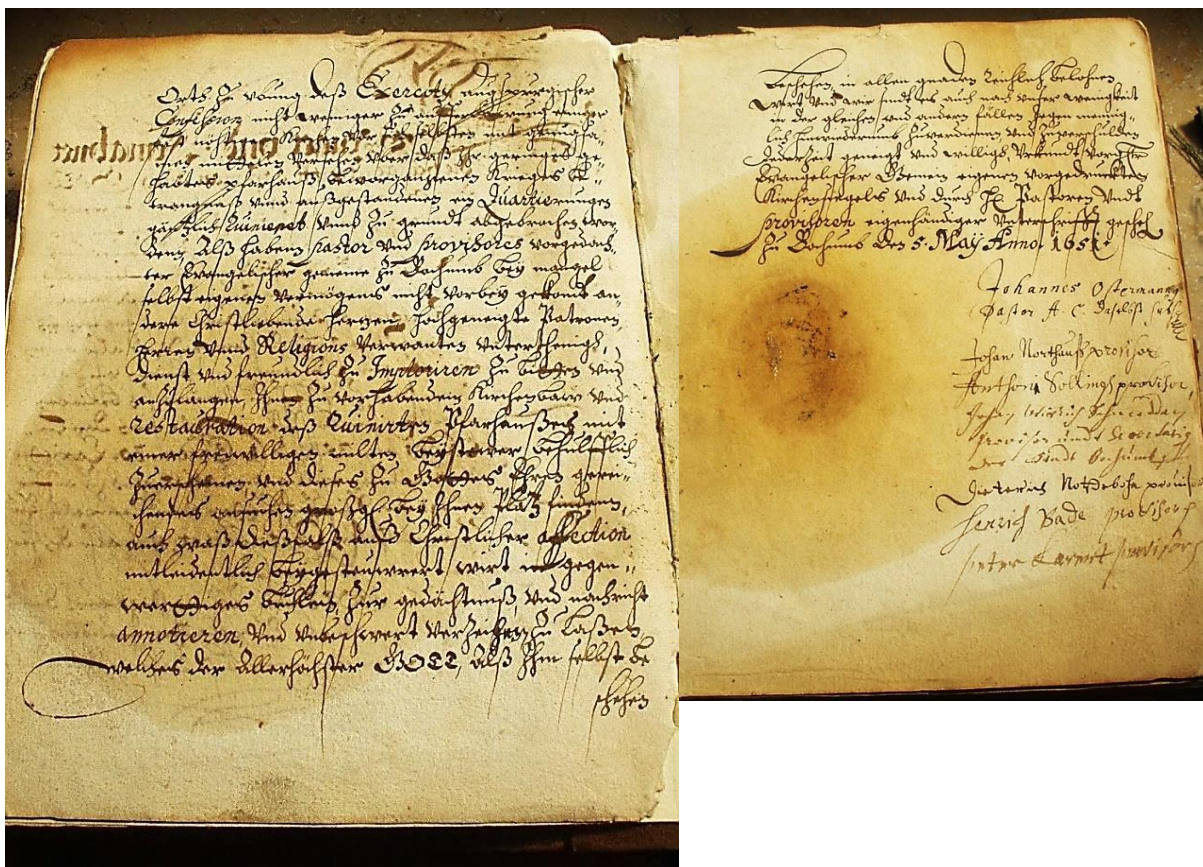 Orths zu ubung deß Exercity augspurgischer
Confession nicht weniger zu
mittelen versehen, vber daß Ihr geringes ge-
habtes pfarhauß, bei vorgangenen Kriegs be-
trangnuß vnnd außgestandenen ein Quartierungen
gäntzlich Ruiniret vnnd zu grundt abgebrochen wor-
den, Alß haben pastor vnd provisores vorgedach-
ter Evangelischer gemeine zu Bochumb bey mangel
selbst eigenen vermögens nicht vorbey gekondt an-
dere Christliebende hertzen, hochgeneigte Patronen,
herren vnnd Religions verwanten vnterthenigh,
dienst vnd freundlich zu Imploriren zu bitten vnd
anzulangen, Ihnen zu vorhabendem Kirchenbaw vnd
restauration deß Ruinirten Pfarhaußes mit
einer freiwilligen milten beystewer behülfflich
zuerscheinen vnd dieses zu Gottes Ehren gerei-
chendes ansuchen bey Ihnen platz finden,
auch waß dießfalß auß Christlicher affection
mitleidentlich beygestewrret wirt in gegen-
wertiges büchlein zur gedächtnuß vnd nachricht
annotieren vnd vnbeschwert verzeichen zu laßen,
welches der Allerhöchster GOTT, alß Ihm selbst be
schehen
beschehen, in allen gnaden reichlich belohnen
wirt vnd wir sindt es auch nach vnser wenigkeit
in der gleichen vnd andern fällen gegen mennig-
lich hinwiederumb zuverdienen vnd zuverschulden
Jederzeit geneigt vnd willigh, Vrkundt vorg.
Evangelischer Gemein eigenen vorgedruckten
Kirchensiegels vnd durch H. Pastoren vndt
provisoren eigenhändiger vnterschrifft geschehen
zu Bochumb den 5. May Anno. 1651
Johannes Ostermann
Pastor A. C.
Johan Northauß provisor
Anthon Sollingh provisor
Johan
provisor vndt Secretarius
der Stadt Bochumb
Dieterich Notdebohm provisor
Henrich Bade provisor
peter provisor